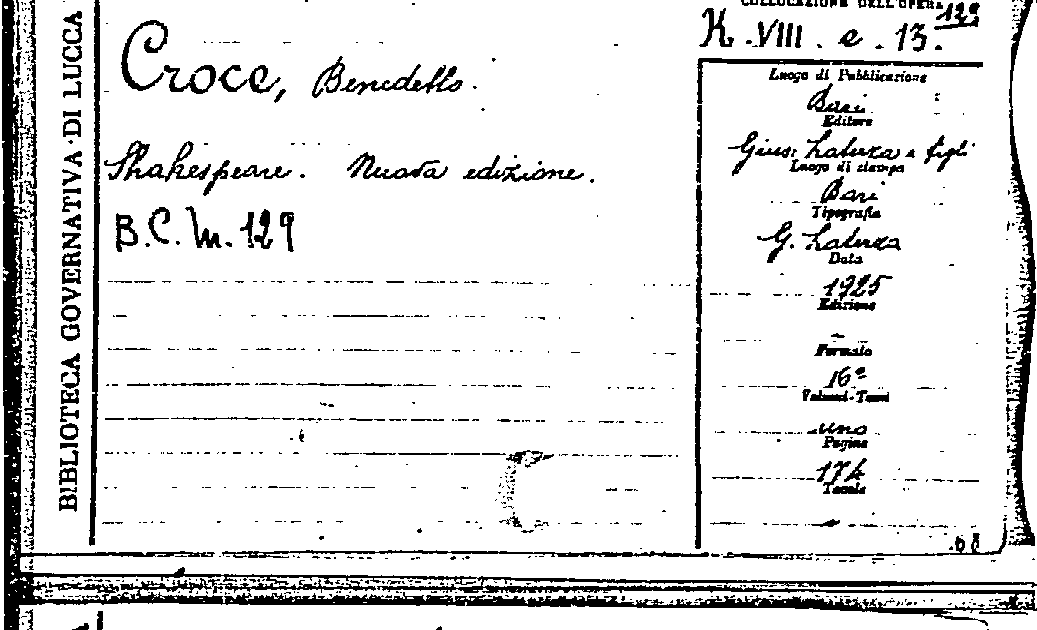 BIBLIOTECA GOVERNATIVA·DI LUCCA
COLLOCAZIONE DELL'OPERA
K.VIII.e.13.
129
Croce, Benedetto.
Shakespeare. Nuova edizione.
B.C.M.129
Luogo di Pubblicazione
Bari
Editore
Gius. Laterza e figli
Luogo di stampa
Bari
Tipografia
G. Laterza
Data
1925
Edizione
Formato
16º
Volumi-Tomi
uno
Pagine
174
Tavole